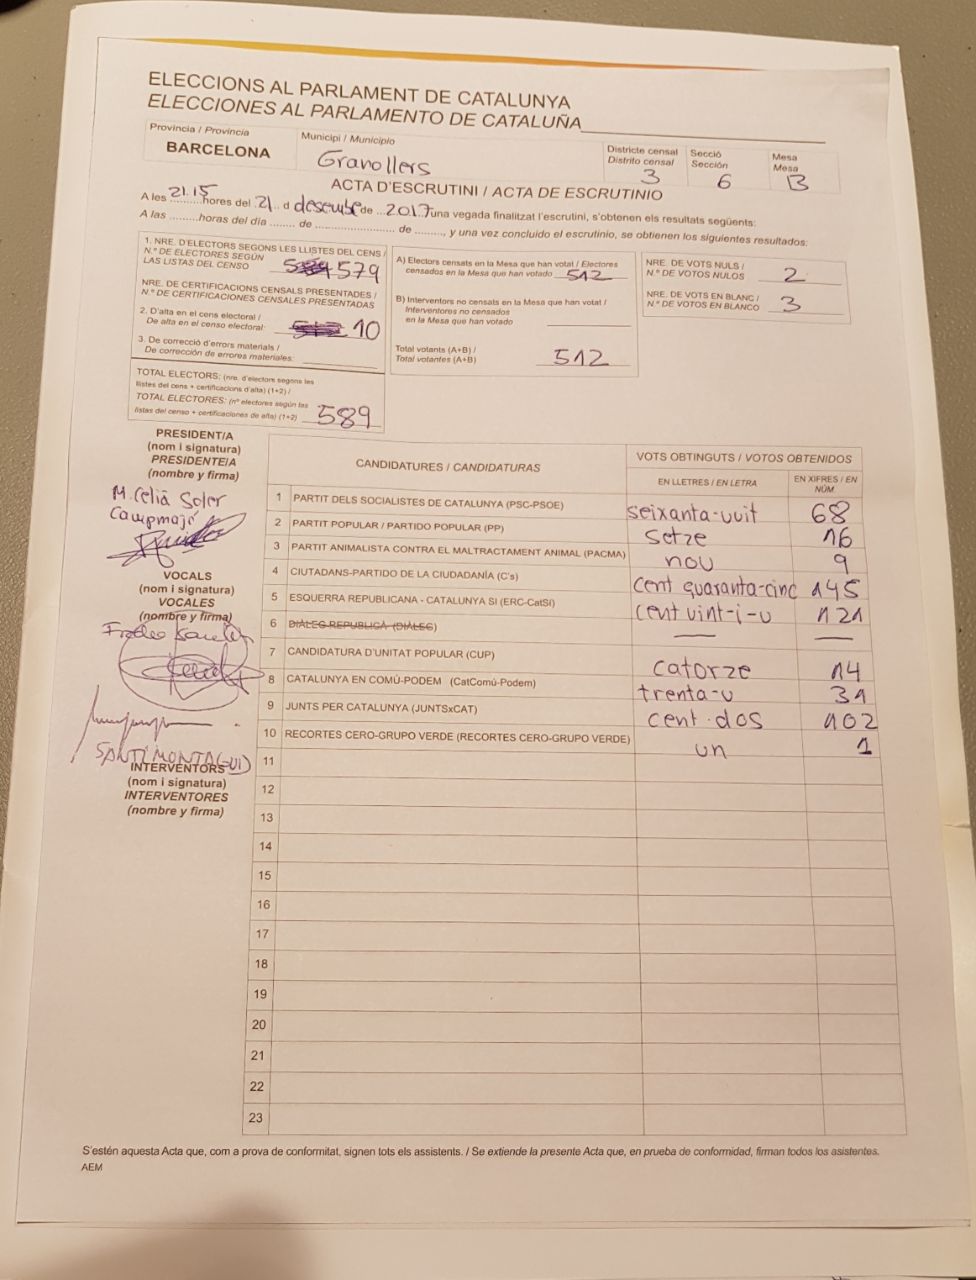 ELECCIONS AL PARLAMENT DE CATALUNYA
ELECCIONES AL PARLAMENTO DE CATALUÑA
Província / Provincia
BARCELONA
Municipi / Municipio
Granollers
Districte censal
Distrito censal
3
Secció
Sección
6
Mesa
Mesa
B
ACTA D'ESCRUTINI / ACTA DE ESCRUTINIO
A les 21.15 hores del 21 d desembre de 2017 una vegada finalitzat l'escrutini, s'obtenen els resultats següents:
A las .........horas del día ........ de ......................... de ........., y una vez concluido el escrutinio, se obtienen los siguientes resultados:
1. NRE. D'ELECTORS SEGONS LES LLISTES DEL CENS /
N.º DE ELECTORES SEGÚN
LAS LISTAS DEL CENSO 579
NRE. DE CERTIFICACIONS CENSALS PRESENTADES /
N.º DE CERTIFICACIONES CENSALES PRESENTADAS
2. D'alta en el cens electoral /
De alta en el censo electoral: 10
3. De correcció d'errors materials /
De corrección de errores materiales:
TOTAL ELECTORS: (nre. d'electors segons les
llistes del cens + certificacions d'alta) (1+2) /
TOTAL ELECTORES: (nº electores según las
listas del censo + certificaciones de alta) (1+2) 589
A) Electors censats en la Mesa que han votat / Electores
censados en la Mesa que han votado 512
B) Interventors no censats en la Mesa que han votat /
Interventores no censados
en la Mesa que han votado
Total votants (A+B) /
Total votantes (A+B) 512
NRE. DE VOTS NULS /
N.º DE VOTOS NULOS 2
NRE. DE VOTS EN BLANC /
N.º DE VOTOS EN BLANCO 3
PRESIDENT/A
(nom i signatura)
PRESIDENTE/A
(nombre y firma)
M. Celià Soler
Campmajó
VOCALS
(nom i signatura)
VOCALES
(nombre y firma)
SANTI MONTAGUD
INTERVENTORS
(nom i signatura)
INTERVENTORES
(nombre y firma)
CANDIDATURES / CANDIDATURAS
VOTS OBTINGUTS / VOTOS OBTENIDOS
EN LLETRES / EN LETRA
EN XIFRES / EN NÚM.
1 PARTIT DELS SOCIALISTES DE CATALUNYA (PSC-PSOE) seixanta-vuit 68
2 PARTIT POPULAR / PARTIDO POPULAR (PP) setze 16
3 PARTIT ANIMALISTA CONTRA EL MALTRACTAMENT ANIMAL (PACMA) nou 9
4 CIUTADANS-PARTIDO DE LA CIUDADANÍA (C's) cent quaranta-cinc 145
5 ESQUERRA REPUBLICANA - CATALUNYA SI (ERC-CatSí) cent vint-i-u 121
6 DIÀLEG REPUBLICÀ (DIÀLEG)
7 CANDIDATURA D'UNITAT POPULAR (CUP) catorze 14
8 CATALUNYA EN COMÚ-PODEM (CatComú-Podem) trenta-u 31
9 JUNTS PER CATALUNYA (JUNTSxCAT) cent dos 102
10 RECORTES CERO-GRUPO VERDE (RECORTES CERO-GRUPO VERDE) un 1
11
12
13
14
15
16
17
18
19
20
21
22
23
S'estén aquesta Acta que, com a prova de conformitat, signen tots els assistents. / Se extiende la presente Acta que, en prueba de conformidad, firman todos los asistentes.
AEM